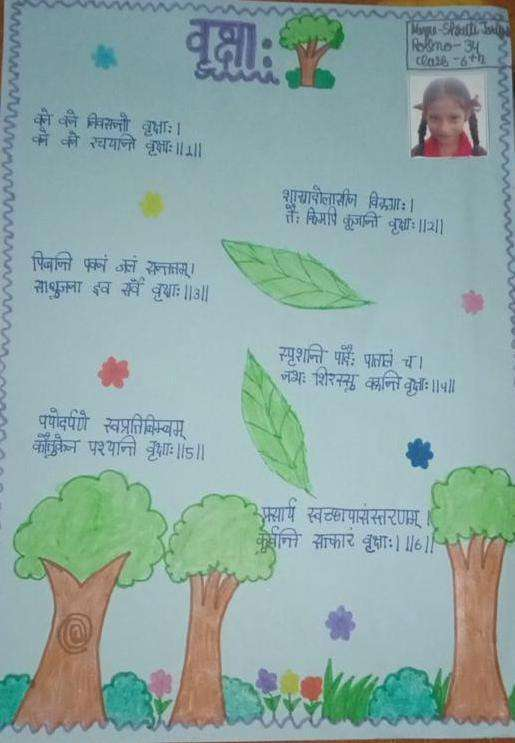 वृक्षाः
Roll no - 34
Class - 6th
वने वने निवसन्तो वृक्षाः ।
वने वने रचयन्ति वृक्षाः ।।1।।
शाखादोलासीना विहगाः ।
तैः किमपि कूजन्ति वृक्षाः ।।2।।
पिबन्ति पवनं जलं सन्ततम् ।
साधुजना इव सर्वे वृक्षाः ।।3।।
स्पृशन्ति पादैः पातालं च ।
नभः शिरस्सु वहन्ति वृक्षाः ।।4।।
पयोदर्पणे स्वप्रतिबिम्बम्
कौतुकेन पश्यन्ति वृक्षाः ।।5।।
प्रसार्य स्वच्छायासंस्तरणम् ।
कुर्वन्ति सत्कारं वृक्षाः ।।6।।